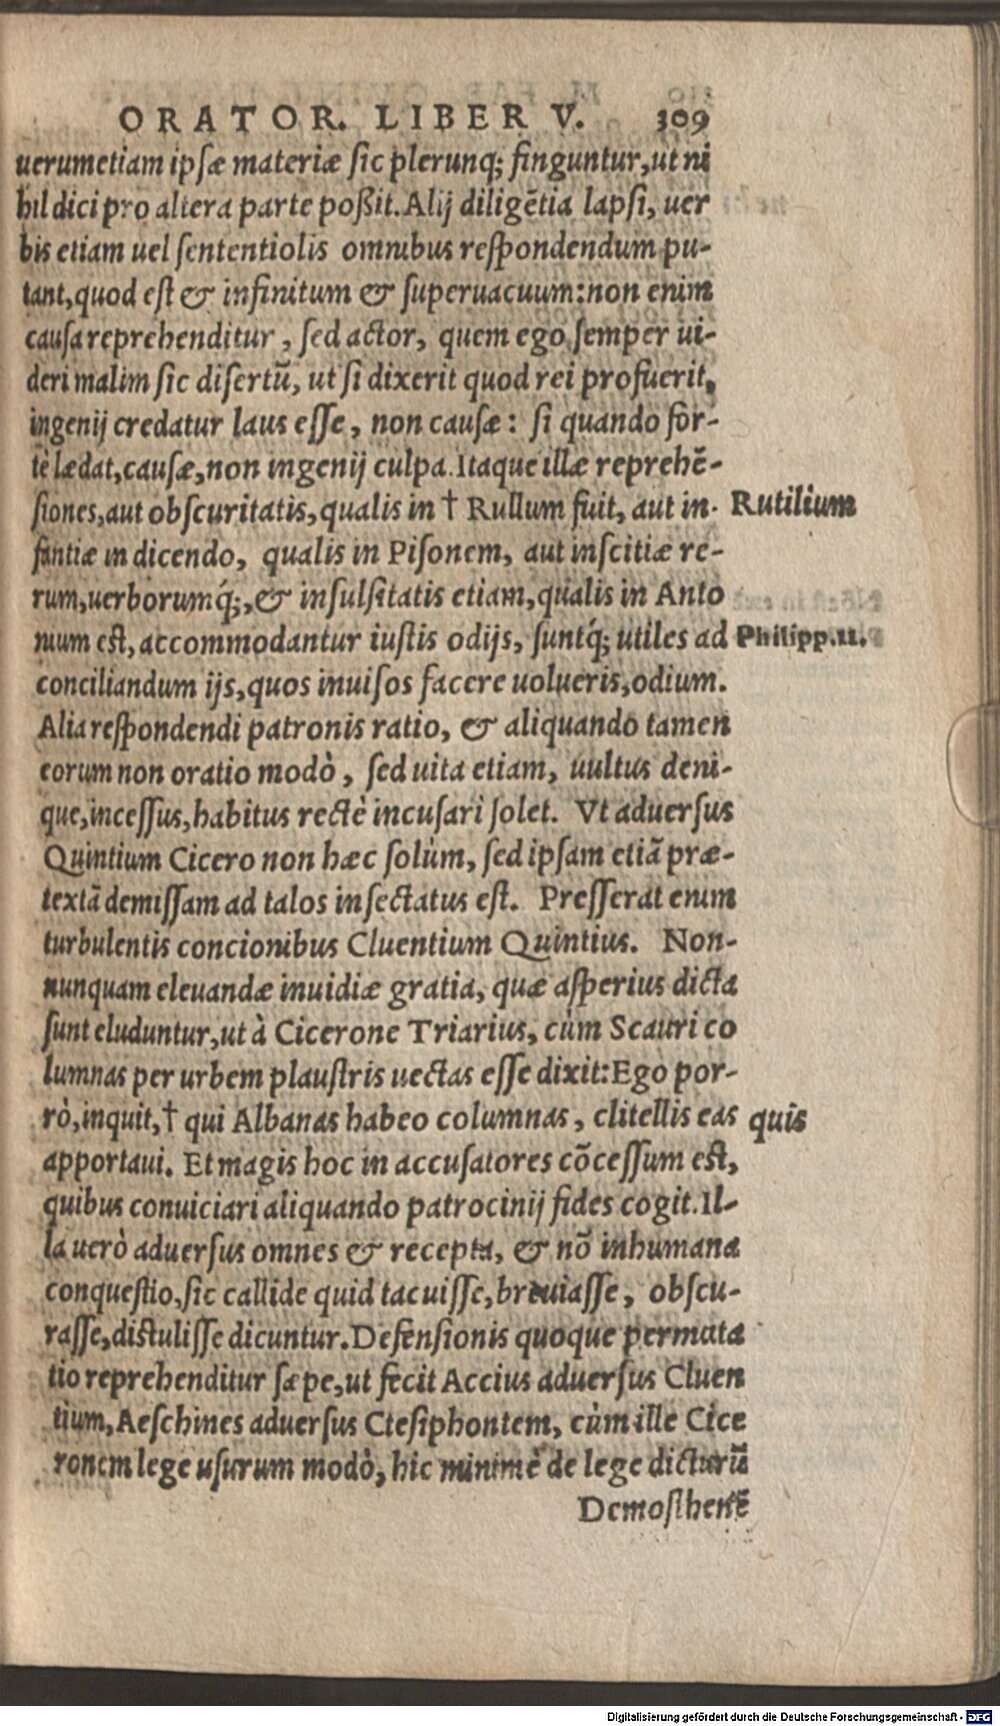 ORATOR. LIBER V. 309
uerumetiam ipsæ materiæ sic plerunq; finguntur, ut ni
hil dici pro altera parte poßit. Alij diligẽtia lapsi, uer
bis etiam uel sententiolis omnibus respondendum pu-
tant, quod est & infinitum & superuacuum: non enim
causa reprehenditur, sed actor, quem ego semper ui-
deri malim sic disertũ, ut si dixerit quod rei profuerit,
ingenij credatur laus esse, non causæ: si quando for-
tè lædat, causæ, non ingenij culpa. Itaque illæ reprehẽ-
siones, aut obscuritatis, qualis in † Rullum fuit, aut in- Rutilium
fantiæ in dicendo, qualis in Pisonem, aut inscitiæ re-
rum, uerborumq́;, & insulsitatis etiam, qualis in Anto
nium est, accommodantur iustis odijs, suntq́; utiles ad Philipp.11.
conciliandum ijs, quos inuisos facere uolueris, odium.
Alia respondendi patronis ratio, & aliquando tamen
eorum non oratio modò, sed uita etiam, uultus deni-
que, incessus, habitus rectè incusari solet. Vt aduersus
Quintium Cicero non hæc solùm, sed ipsam etiã præ-
textã demissam ad talos insectatus est. Presserat enim
turbulentis concionibus Cluentium Quintius. Non-
nunquam eleuandæ inuidiæ gratia, quæ asperius dicta
sunt eluduntur, ut à Cicerone Triarius, cùm Scauri co
lumnas per urbem plaustris uectas esse dixit: Ego por-
rò, inquit, † qui Albanas habeo columnas, clitellis eas quis
apportaui. Et magis hoc in accusatores cõcessum est,
quibus conuiciari aliquando patrocinij fides cogit. Il-
la uerò aduersus omnes & recepta, & nõ inhumana
conquestio, sic callide quid tacuisse, breuiasse, obscu-
rasse, distulisse dicuntur. Defensionis quoque permuta
tio reprehenditur sæpe, ut fecit Accius aduersus Cluen
tium, Aeschines aduersus Ctesiphontem, cùm ille Cice
ronem lege usurum modò, hic minimè de lege dicturũ
Demosthenẽ
Digitalisierung gefördert durch die Deutsche Forschungsgemeinschaft - DFG